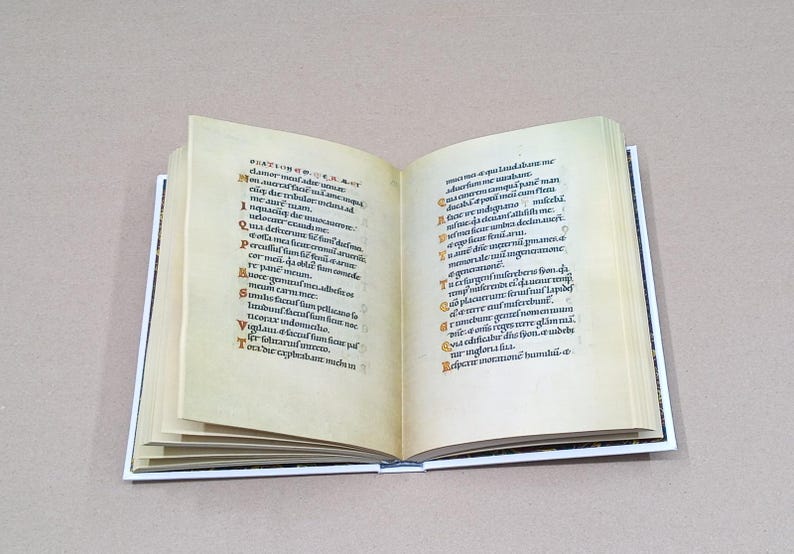 ORATIONEO. QE. R. A. ET
clamor meus ad te ueniat
Non auertas faciē tuā a me: inqua
cūq; die tribulor: inclina ad
me aurē tuam.
In quacūq; die inuocauero te:
uelociter exaudi me.
Quia defecerunt sic̄ fum⁹ dies mei.
& ossa mea sicut cremiū aruerūt.
Percussus sum sic̄ fenū & aruit
cor meū. q̄a oblit⁹ sum comede
re panē meum.
A uoce gemitus mei. adhesit os
meum carni mee.
Similis factus sum pellicano so
litudinis: factus sum sicut noc
ticorax in domicilio.
Vigilaui & factus sum sicut pas
ser solitarius in tecto.
Tota die exp̄brabant michi in
imici mei & qui laudabant me
aduersum me iurabant.
Quia cinerem tamquā panē man
ducabā & potū meū cum fletu
A facie ire indignatio miscebā.
nis tue: q̄a eleuans allisisti me.
Dies mei sicut umbra declinauer̄t.
& ego sicut fenū arui.
Tu aut̄ dn̄e ineternū p̄manes: &
memoriale tuū ingeneratione
& generationē.
Tu exsurgens misereberis syon. q̄a
temp⁹ miserendi ei⁹. q̄a uenit temp⁹.
Qm̄ placuerunt seruis tuis lapides
ei⁹: & terre ei⁹ miserebunt̄.
Et timebunt gentes nomen tuum
dn̄e: & om̄s reges terre glām tuā.
Quia edificabit dn̄s syon. & uideb
itur in gloria sua.
Respexit in orationē humiliū. &